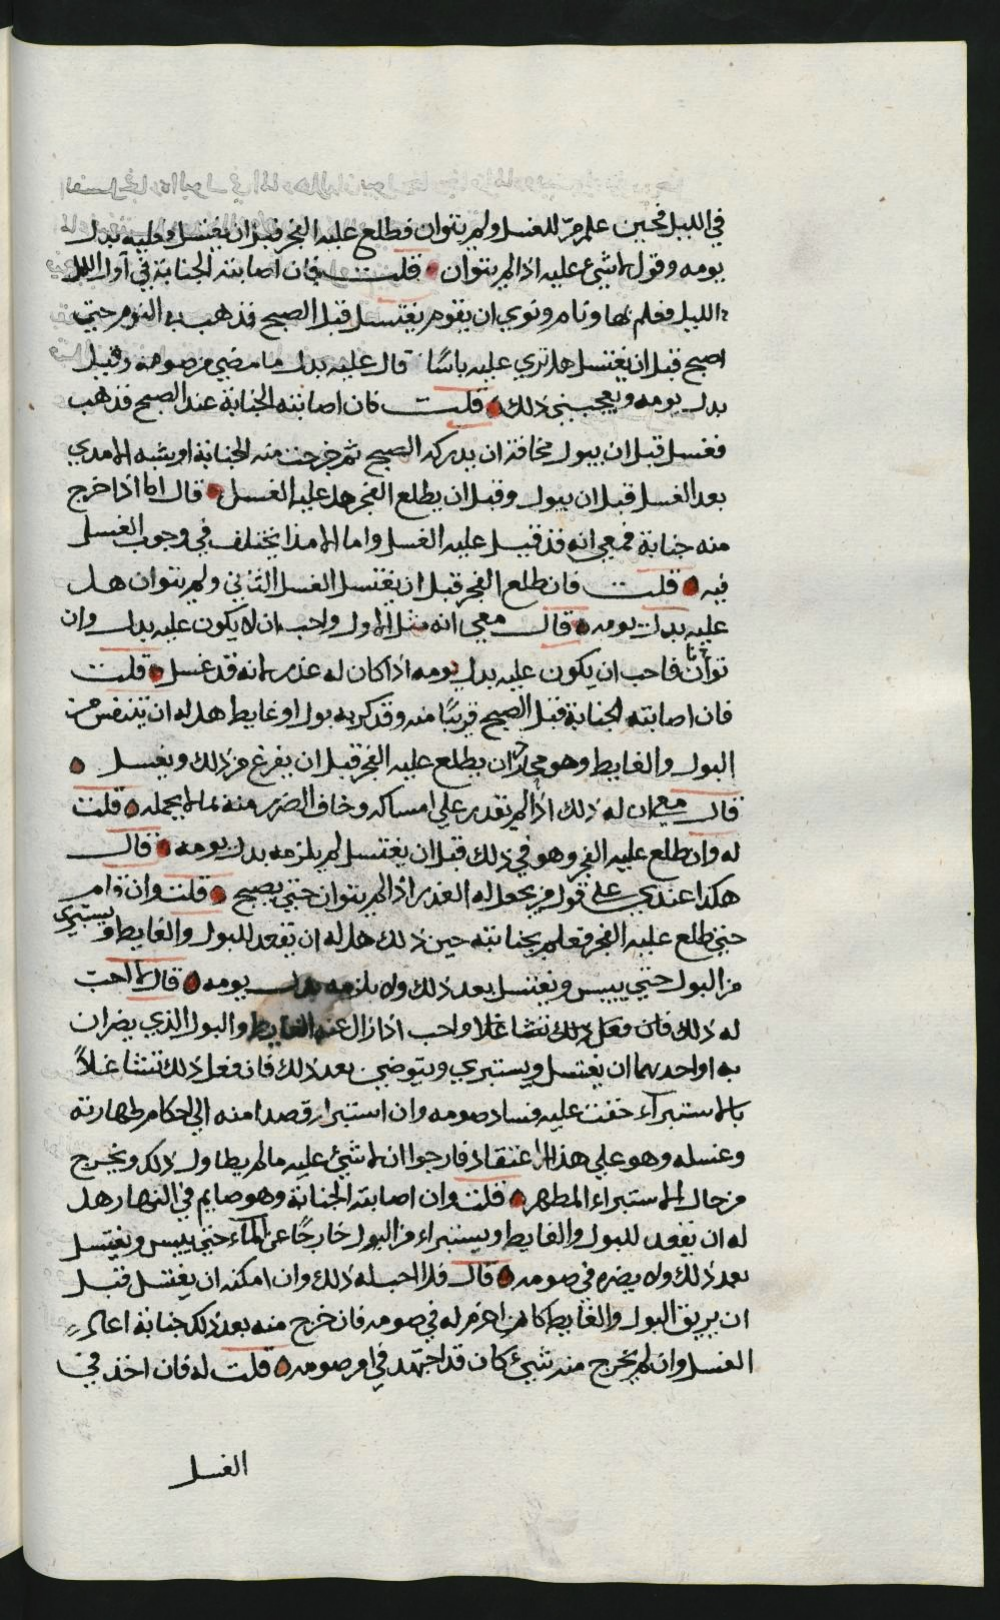 في الليل فحين علم مرّ للغسل ولم يتوان فطلع عليه الفجر قبل ان يغتسل فعليه بدل
يومه وقول لاشيء عليه اذا لم يتوان قلت فان اصابته الجنابة في اول الليل
الليل فعلم بها ونام ونوي ان يقوم يغتسل قبل الصبح فذهب به النوم حتي
اصبح قبل ان يغتسل هل تري عليه باسًا قال عليه بدل ما مضي من صومه وقيل
بدل يومه ويعجبني ذلك قلت فان اصابته الجنابة عند الصبح فذهب
فغسل قبل ان يبول مخافة ان يدركه الصبح ثم خرجت منه الجنابة او يشبه المدي
بعد الغسل قبل ان يبول وقبل ان يطلع الفجر هل عليه الغسل قال اما اذا خرج
منه جنابة فمعي انه قد قيل عليه الغسل واما المذا يختلف في وجوب الغسل
فيه قلت فان طلع الفجر قبل ان يغتسل الغسل الثاني ولم يتوان هل
عليه بدل يومه قال معي انه مثل الاول واحب ان لا يكون عليه بدل وان
توانا فاحب ان يكون عليه بدل يومه اذا كان له عذر لانه قد غسل قلت
فان اصابته الجنابة قبل الصبح قريبًا منه وقد كربه بول او غايط هل له ان يتنفس من
البول والغايط وهو محاذر ان يطلع عليه الفجر قبل ان يفرغ من ذلك ويغسل
قال معي ان له ذلك اذا لم يقدر علي امساكه وخاف الضرر منه مالا يحمله قلت
له وان طلع عليه الفجر وهو في ذلك قبل ان يغتسل لم يلزمه بدل يومه قال
هكذا عندي علي قول من يجعل له العذر اذا لم يتوان حتي يصبح قلت وان قام
حتي طلع عليه الفجر فعلم بجنابته حين ذلك هل له ان يقعد للبول والغايط ويستبري
من البول حتي ييبس ويغتسل بعد ذلك ولا يلزمه بدل يومه قال لا احب
له ذلك فان فعل ذلك تشاغلا واحب اذا زال عنه الغايط والبول الذي يضران
به او احدهما ان يغتسل ويستبري ويتوضي بعد ذلك فان فعل ذلك تشاغلاً
بالاستبرآء خفت عليه فساد صومه وان استبرا قصدا منه الي احكام طهارته
وغسله وهو علي هذا الاعتقاد فارجوا ان لا شيء عليه ما لم يطاول ذلك ويخرج
من حال الاستبراء المطهر قلت وان اصابته الجنابة وهو صايم في النهار هل
له ان يقعد للبول والغايط ويستبراء من البول خارجًا عن المآء حتي ييبس ويغتسل
بعد ذلك ولا يضره في صومه قال فلا احب له ذلك وان امكنه ان يغتسل قبل
ان يريق البول والغايط كان احزم له في صومه فان خرج منه بعد ذلك جنابة اعاد
الغسل وان لم يخرج منه شيء كان قد اجتهد في امر صومه قلت له فان اخذ في
الغسل